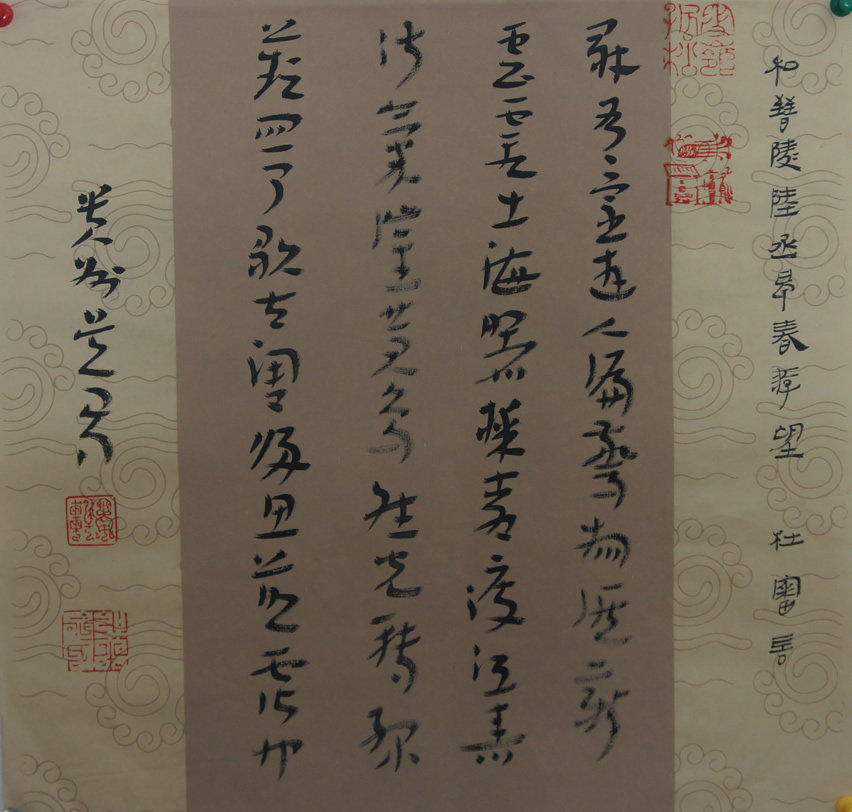 和晉陵陸丞早春游望 杜審言
獨有宦遊人偏驚物候新
雲霞出海曙梅柳渡江春
淑氣催黃鳥晴光轉綠
蘋忽聞歌古調歸思欲霑巾